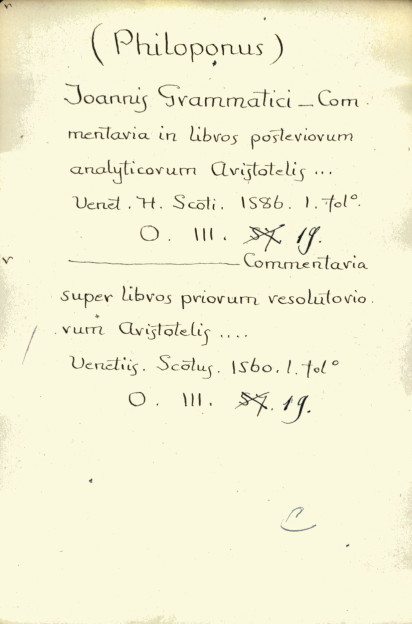 (Philoponus)
Joannis Grammatici — Com
mentaria in libros posteriorum
analyticorum Aristotelis ...
Venet. H. Scoti. 1586. 1. folº.
O. III. 57 19.
———— Commentaria
super libros priorum resolutorio.
rum Aristotelis ....
Venetiis. Scotus. 1560. 1. folº
O. III. 57. 19.
C